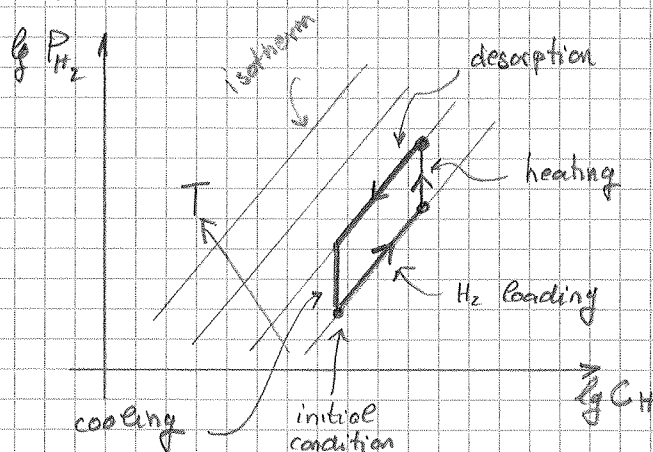 lg P_H₂
isotherm
desorption
heating
T
H₂ loading
lg C_H
cooling
initial
condition